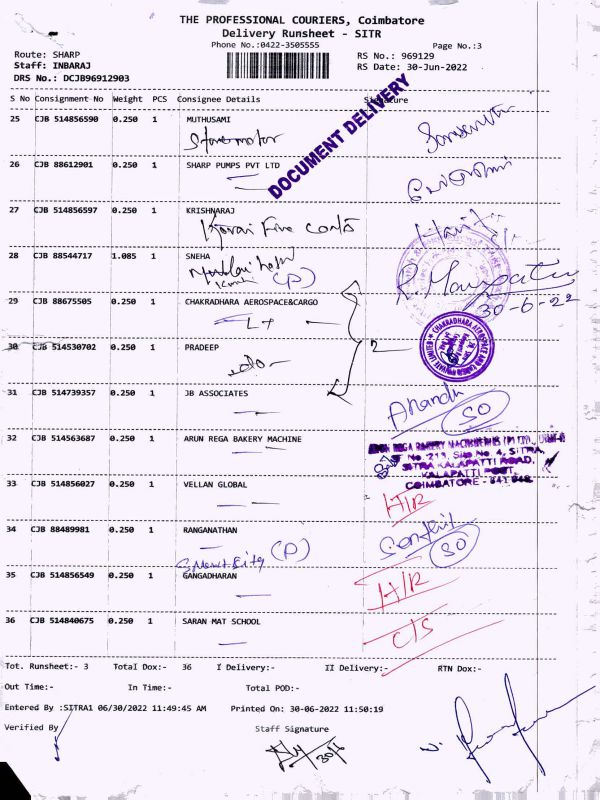 THE PROFESSIONAL COURIERS, Coimbatore
Delivery Runsheet - SITR
Phone No.:0422-3505555 Page No.:3
Route: SHARP RS No.: 969129
Staff: INBARAJ RS Date: 30-Jun-2022
DRS No.: DCJB96912903
S No Consignment No Weight PCS Consignee Details Signature
DOCUMENT DELIVERY
25 CJB 514856590 0.250 1 MUTHUSAMI
26 CJB 88612901 0.250 1 SHARP PUMPS PVT LTD
27 CJB 514856597 0.250 1 KRISHNARAJ
28 CJB 88544717 1.085 1 SNEHA
(P)
30-6-22
29 CJB 88675505 0.250 1 CHAKRADHARA AEROSPACE&CARGO
30 CJB 514530702 0.250 1 PRADEEP
31 CJB 514739357 0.250 1 JB ASSOCIATES
32 CJB 514563687 0.250 1 ARUN REGA BAKERY MACHINE
No. 213, Site No. 4, SITRA,
SITRA KALAPATTI ROAD,
KALAPATTI POST,
COIMBATORE - 641 048
33 CJB 514856027 0.250 1 VELLAN GLOBAL
H/R
34 CJB 88489981 0.250 1 RANGANATHAN
(P)
35 CJB 514856549 0.250 1 GANGADHARAN
H/R
36 CJB 514840675 0.250 1 SARAN MAT SCHOOL
C/S
Tot. Runsheet:- 3 Total Dox:- 36 I Delivery:- II Delivery:- RTN Dox:-
Out Time:- In Time:- Total POD:-
Entered By :SITRA1 06/30/2022 11:49:45 AM Printed On: 30-06-2022 11:50:19
Verified By Staff Signature